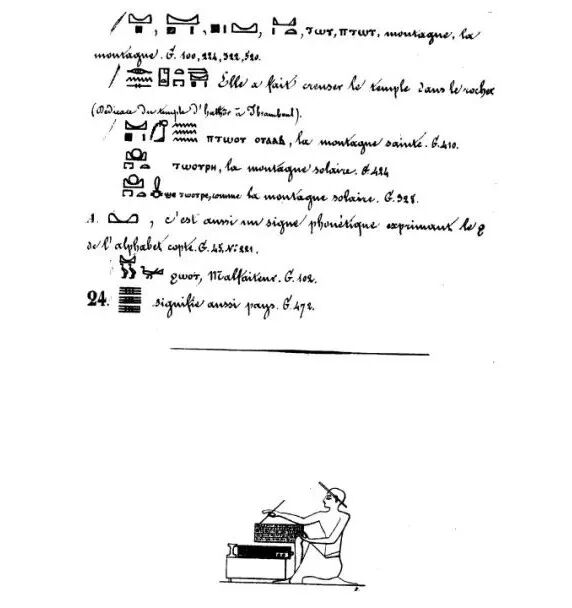 ⲧⲱⲩ, ⲡⲧⲱⲩ, montagne, la
montagne. G. 100, 224, 322, 520.
Elle a fait creuser le temple dans le rocher
(Dédicace du temple d'hathôr à Ibsamboul).
ⲡⲧⲱⲟⲩ ⲟⲩⲁⲁⲃ, la montagne sainte. G. 410.
ⲧⲱⲟⲩⲣⲏ, la montagne solaire. G. 424
ⲧⲱⲟⲩⲣⲉ, comme la montagne solaire. G. 328.
A. , c'est aussi un signe phonétique exprimant le ϩ
de l'alphabet copte. G. 45, N° 221.
ϩⲱⲟⲩ, Malfaiteur. G. 102.
24. signifie aussi pays. G. 472.